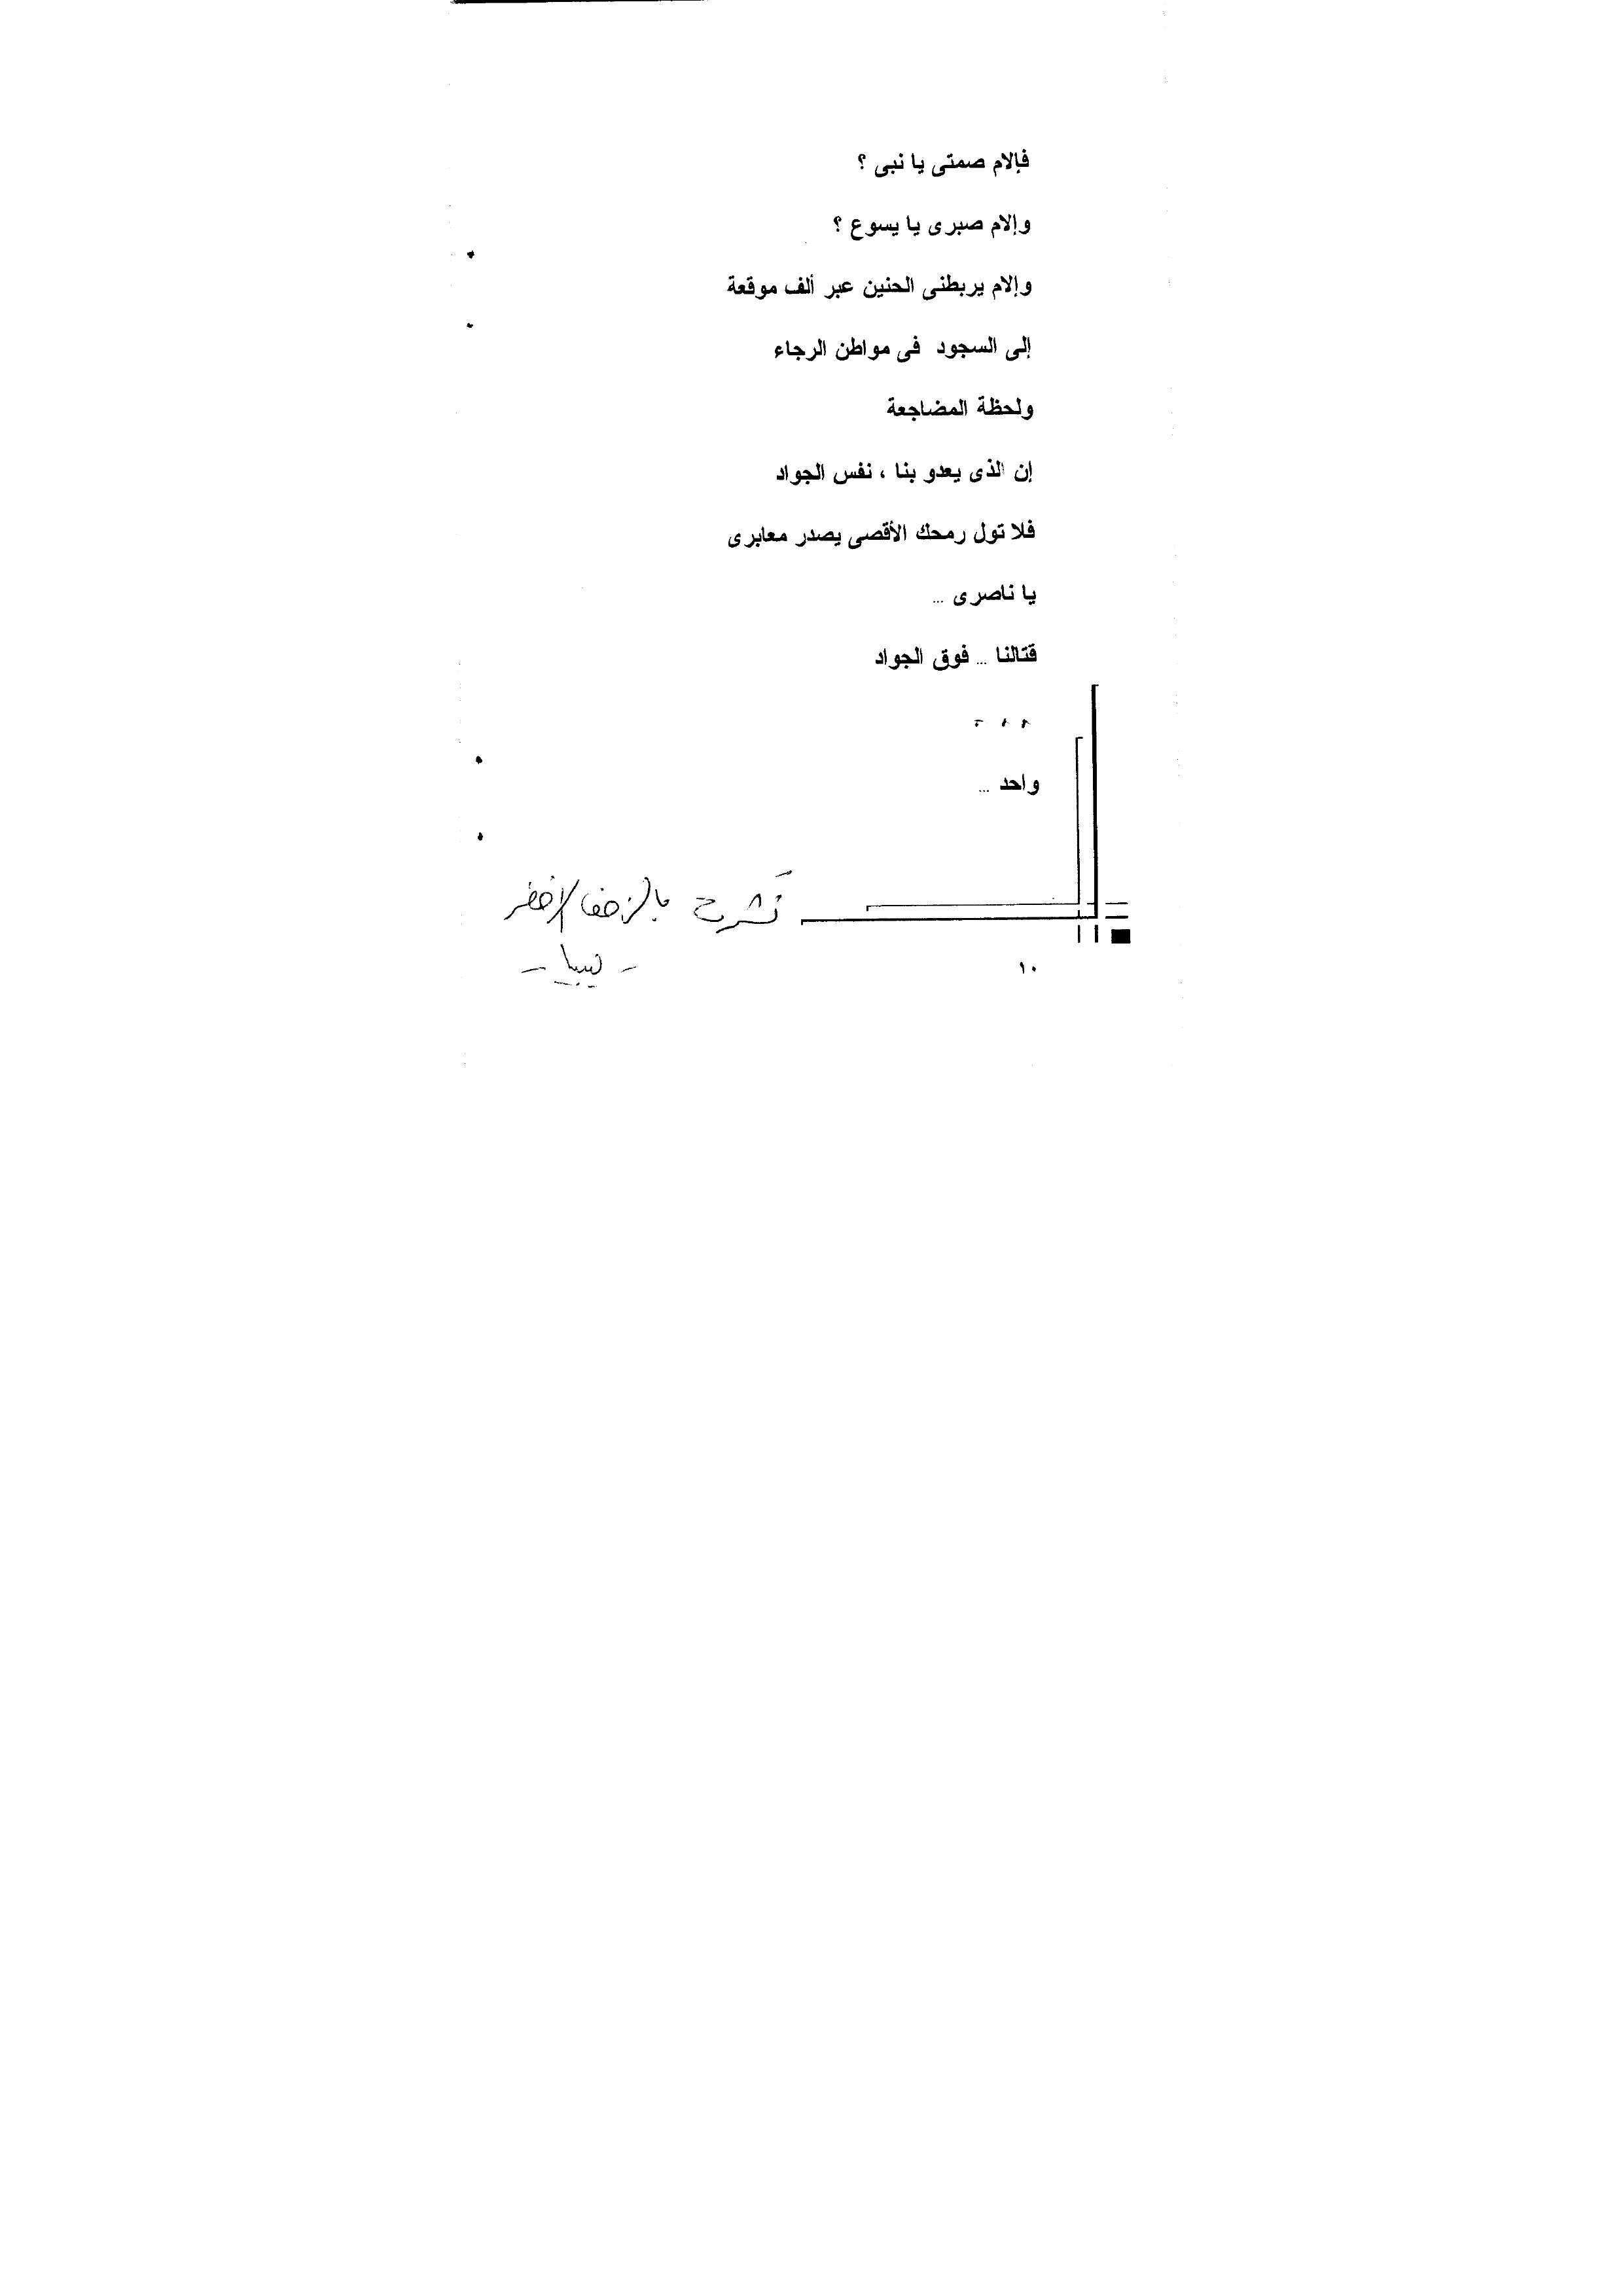 فإلام صمتى يا نبى ؟
وإلام صبرى يا يسوع ؟
وإلام يربطنى الحنين عبر ألف موقعة
إلى السجود فى مواطن الرجاء
ولحظة المضاجعة
إن الذى يعدو بنا ، نفس الجواد
فلا تول رمحك الأقصى يصدر معابرى
يا ناصرى ...
قتالنا ... فوق الجواد
واحد ...
بالزحف الأخضر
- ليبيا -
١٠